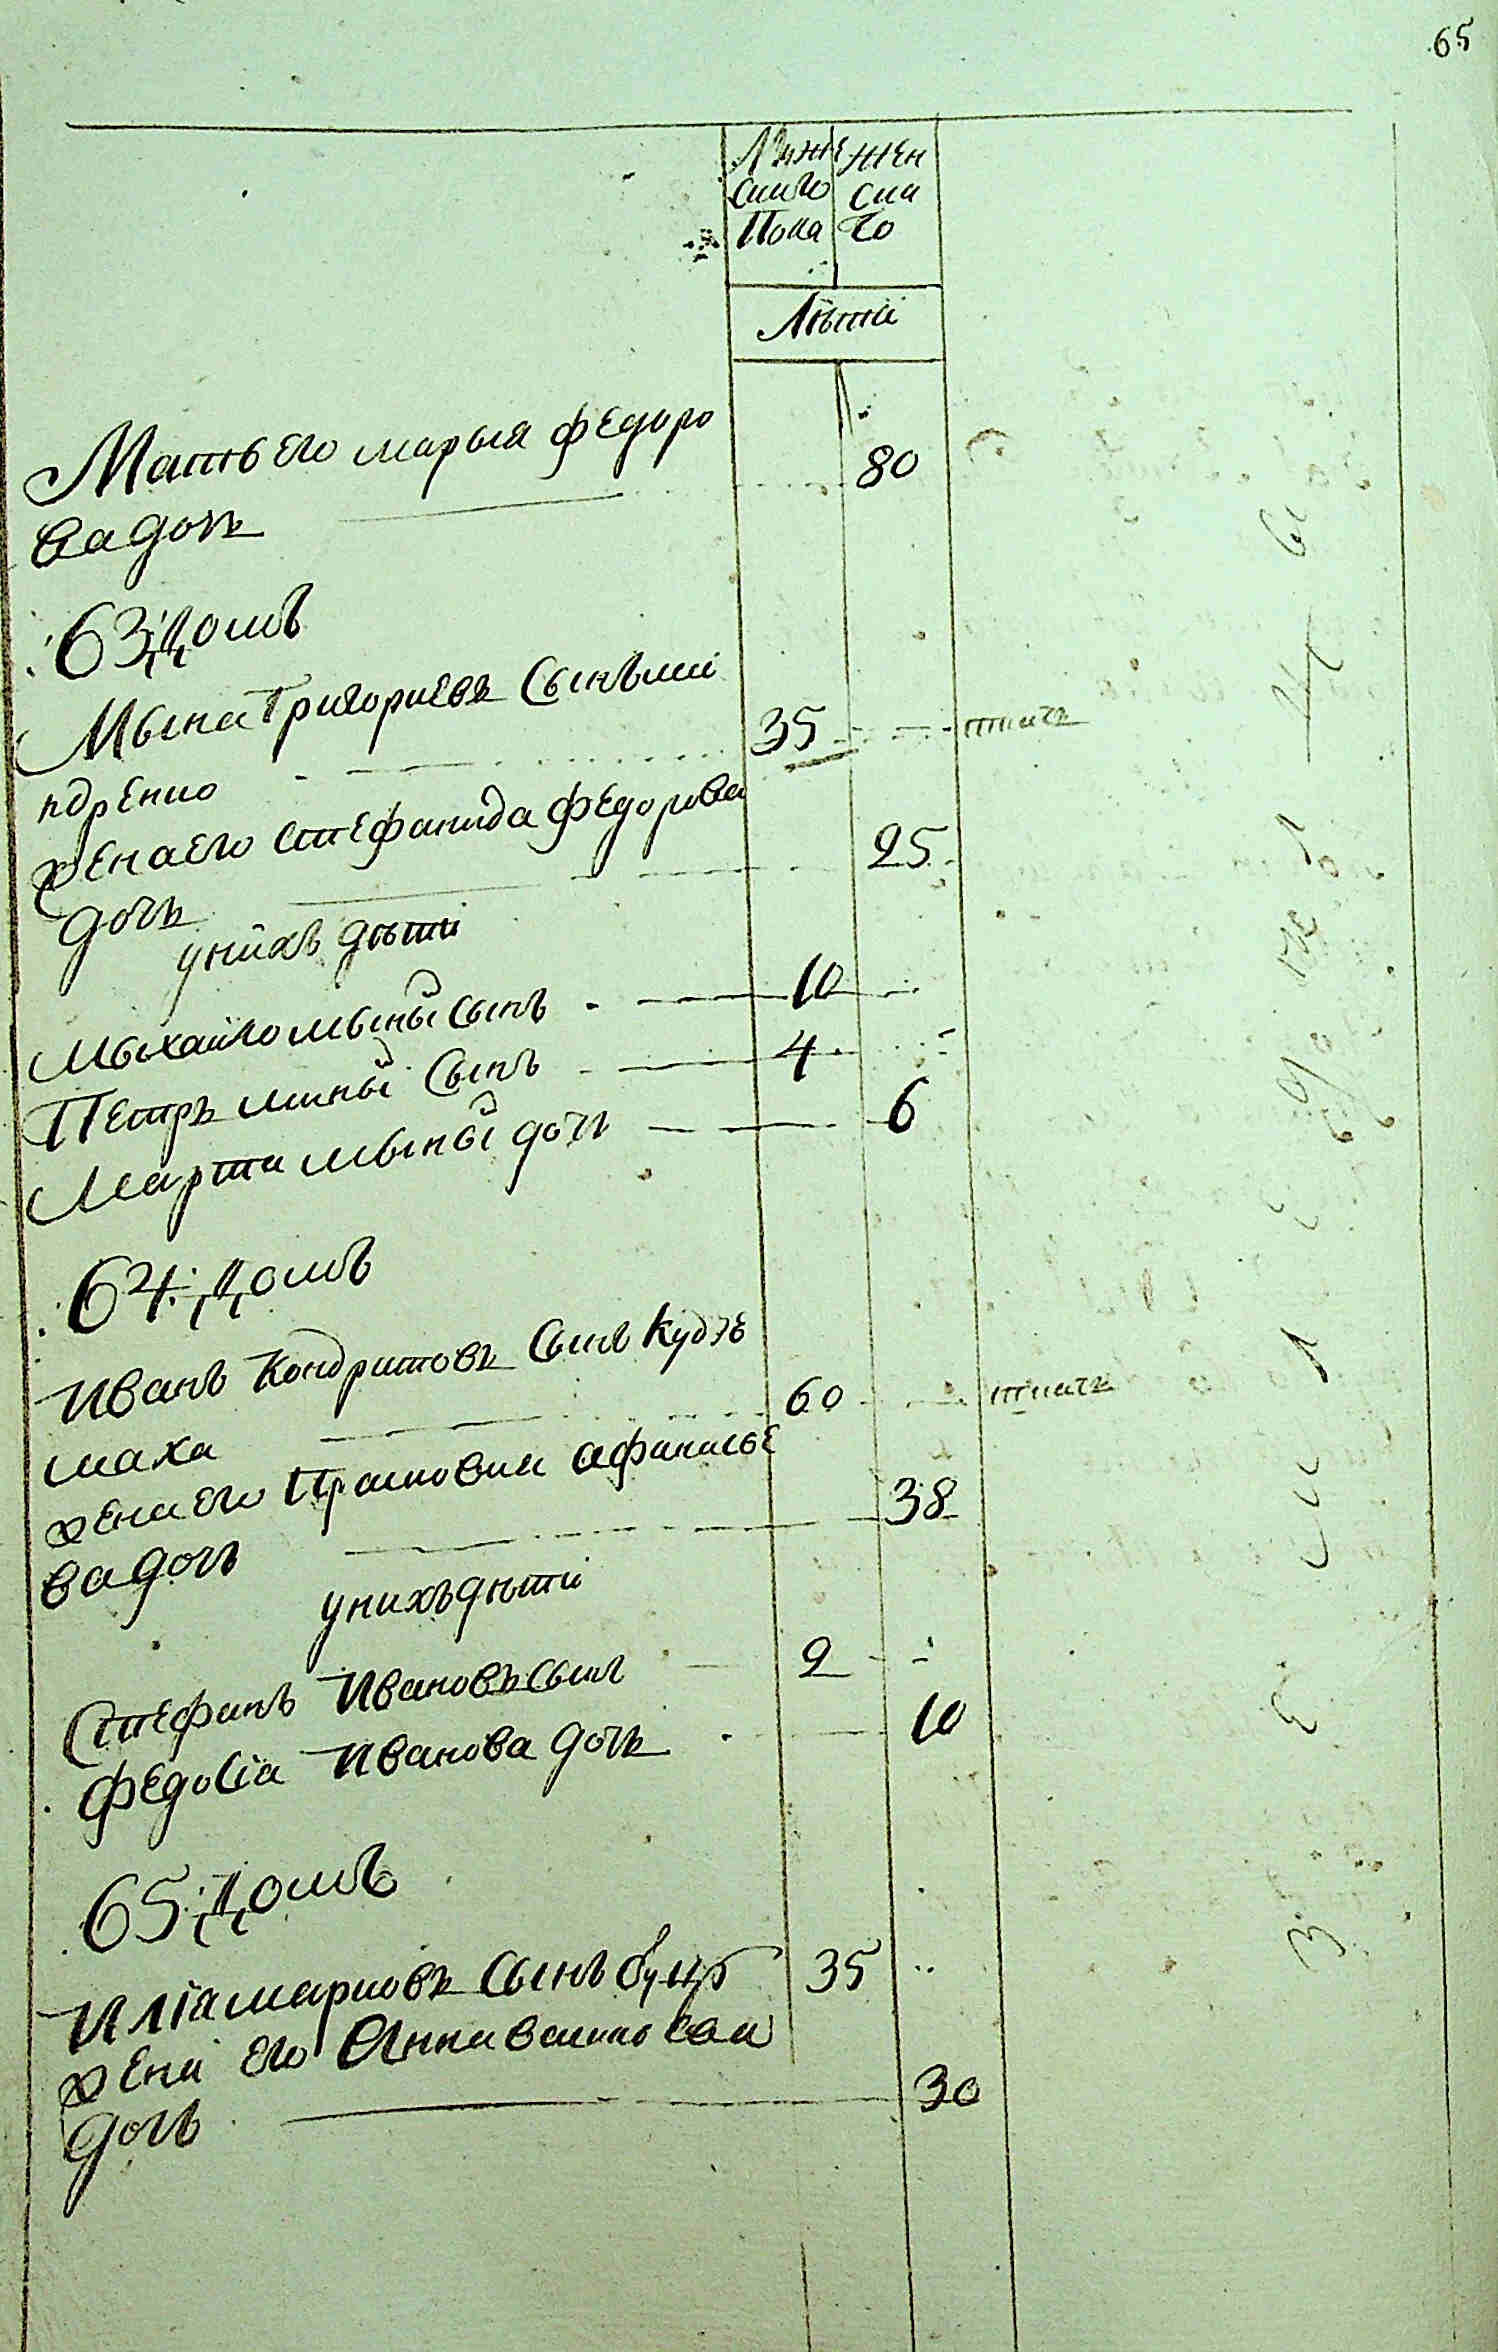 65
Муже жен
скаго ска
Пола го
Лѣта
Мать его марыя федоро
ва дочь 80
63 Домъ
Мына Григориевъ Сынъ ши
ндренко 35 ткачъ
жена его стефанида федорова
дочъ 25
у нихъ дѣти
Мыхайло мыный сынъ 10
Петръ миный Сынъ 4
Марта мыный дочъ 6
64 Домъ
Иванъ Кондратовъ Сынъ
маха 60 ткачъ
жена его Прасковия афанасье
ва дочъ 38
у нихъ дѣти
Стефанъ Ивановъ сынъ 2
Федосіа Иванова дочъ 10
65 Домъ
Иліа марковъ Сынъ 35
жена его Анна
дочъ 30